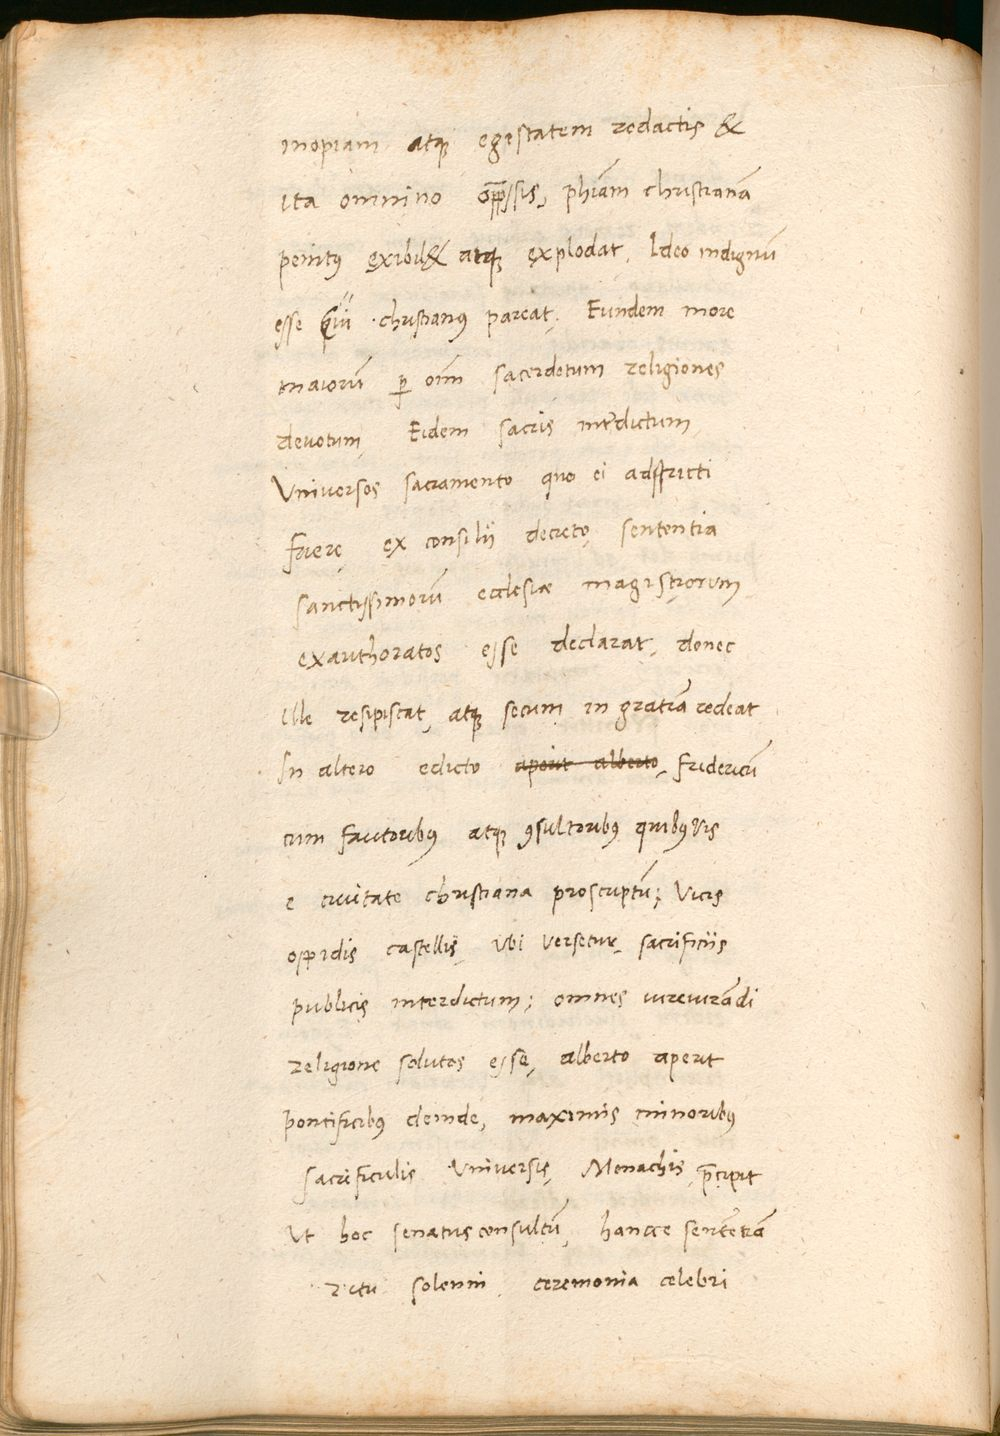 inopiam atq; egestatem redactis &
ita omnino opp̄ssis, phīam christianā
penitus exibil& atq; explodat, Ideo indignū
esse cui christianus pareat, Eundem more
maiorū p oīm sacerdotum religiones
devotum, Eidem sacris interdictum,
Vniversos sacramento quo ei adstricti
fuere, ex consilii decreto, sententia
sanctissimorū ecclesiæ magistrorum
exauthoratos esse declarat, donec
ille resipiscat, atq; secum in gratiā redeat
In altero edicto aperit alberto, Fridericū
cum fautoribus atq; ꝯsultoribus quibusvis
e civitate christiana proscriptū; Vicis
oppidis castellis, vbi versetur, sacrificiis
publicis interdictum; omnes iureiurādi
religione solutos esse, alberto aperit
pontificibus deinde, maximis minoribus
sacrificulis Vniversis, Monachis, p̄cipit
Vt hoc senatusconsultū, hancce sentētiā
ritu solenni ceremonia celebri